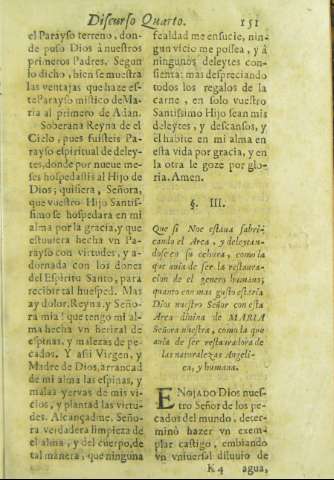 Discurso Quarto. 151
el Parayso terreno, don-
de puso Dios à nuestros
primeros Padres. Segun
lo dicho, bien se muestra
las ventajas que haze es-
te Parayso mistico de Ma-
ria al primero de Adan.
Soberana Reyna de el
Cielo, pues fuisteis Pa-
rayso espiritual de deley-
tes, donde por nueue me-
ses hospedastis al Hijo de
Dios; quisiera, Señora,
que vuestro Hijo Santis-
simo se hospedara en mi
alma por la gracia, y que
estuuiera hecha vn Pa-
rayso con virtudes, y a-
dornada con los dones
del Espiritu Santo, para
recibir tal huesped. Mas
ay dolor, Reyna, y Seño-
ra mia! que tengo mi al-
ma hecha vn herizal de
espinas, y malezas de pe-
cados. Y assi Virgen, y
Madre de Dios, arrancad
de mi alma las espinas, y
malas yervas de mis vi-
cios, y plantad las virtu-
des. Alcançadme, Seño-
ra verdadera limpieza de
el alma, y del cuerpo, de
tal manera, que ninguna
fealdad me ensucie, nin-
gun vicio me possea, y à
ningunos deleytes con-
sienta: mas despreciando
todos los regalos de la
carne, en solo vuestro
Santissimo Hijo sean mis
deleytes, y descansos, y
èl habite en mi alma en
esta vida por gracia, y en
la otra le goze por glo-
ria. Amen.
§. III.
Que si Noe estaua fabri-
cando el Arca, y deleytan-
dose en su echura, como la
que auia de ser la restaura-
cion de el genero humano;
quanto con mas gusto estaria
Dios nuestro Señor con esta
Arca diuina de MARIA
Señora nuestra, como la que
auia de ser restauradora de
las naturalezas Angeli-
ca, y humana.
ENOJADO Dios nues-
tro Señor de los pe-
cados del mundo, deter-
minò hazer vn exem-
plar castigo, embiando
vn vniuersal diluuio de
K 4 agua,